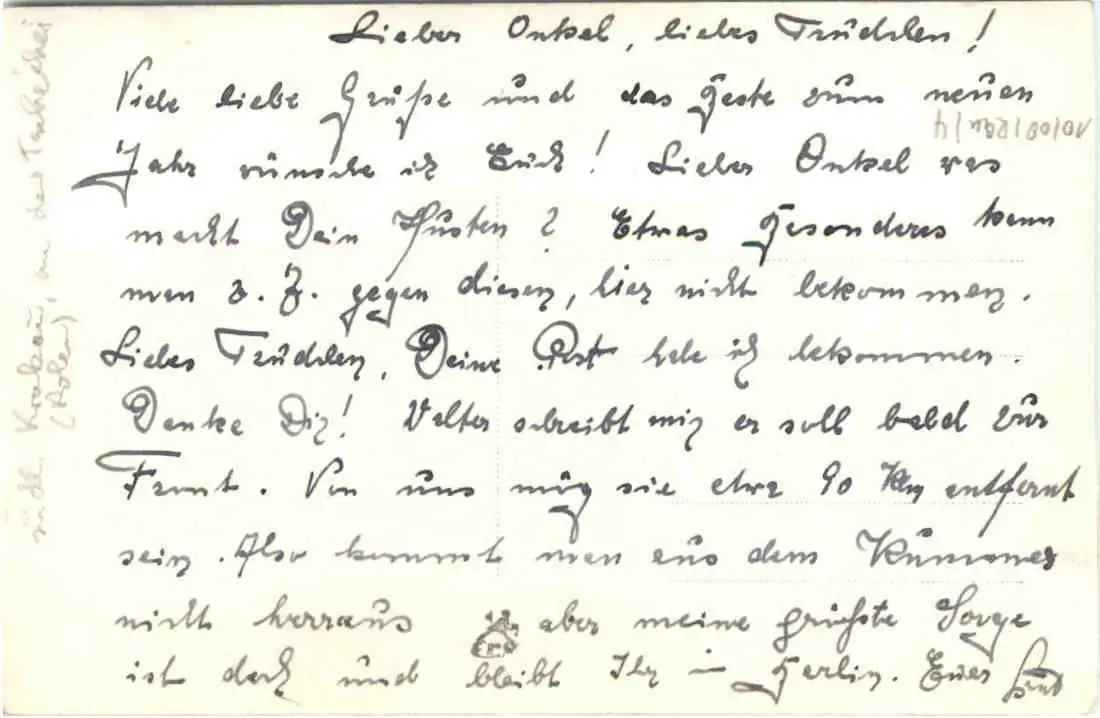 Lieber Onkel, liebes Trudchen!
Viele liebe Grüße und das Beste zum neuen
Jahr wünsche ich Euch! Lieber Onkel was
macht Dein Husten? Etwas Besonderes kann
man z. Z. gegen diesen, hier nicht bekommen.
Liebes Trudchen, Deine Post habe ich bekommen.
Danke Dir! Walter schreibt mir er soll bald zur
Front. Von uns mag sie etwa 90 Km entfernt
sein. Also kommt man aus dem Kummer
nicht herraus aber meine größte Sorge
ist doch und bleibt Ihr in Berlin. Euer
südl. Krakau, an der Tschechei
(Polen)